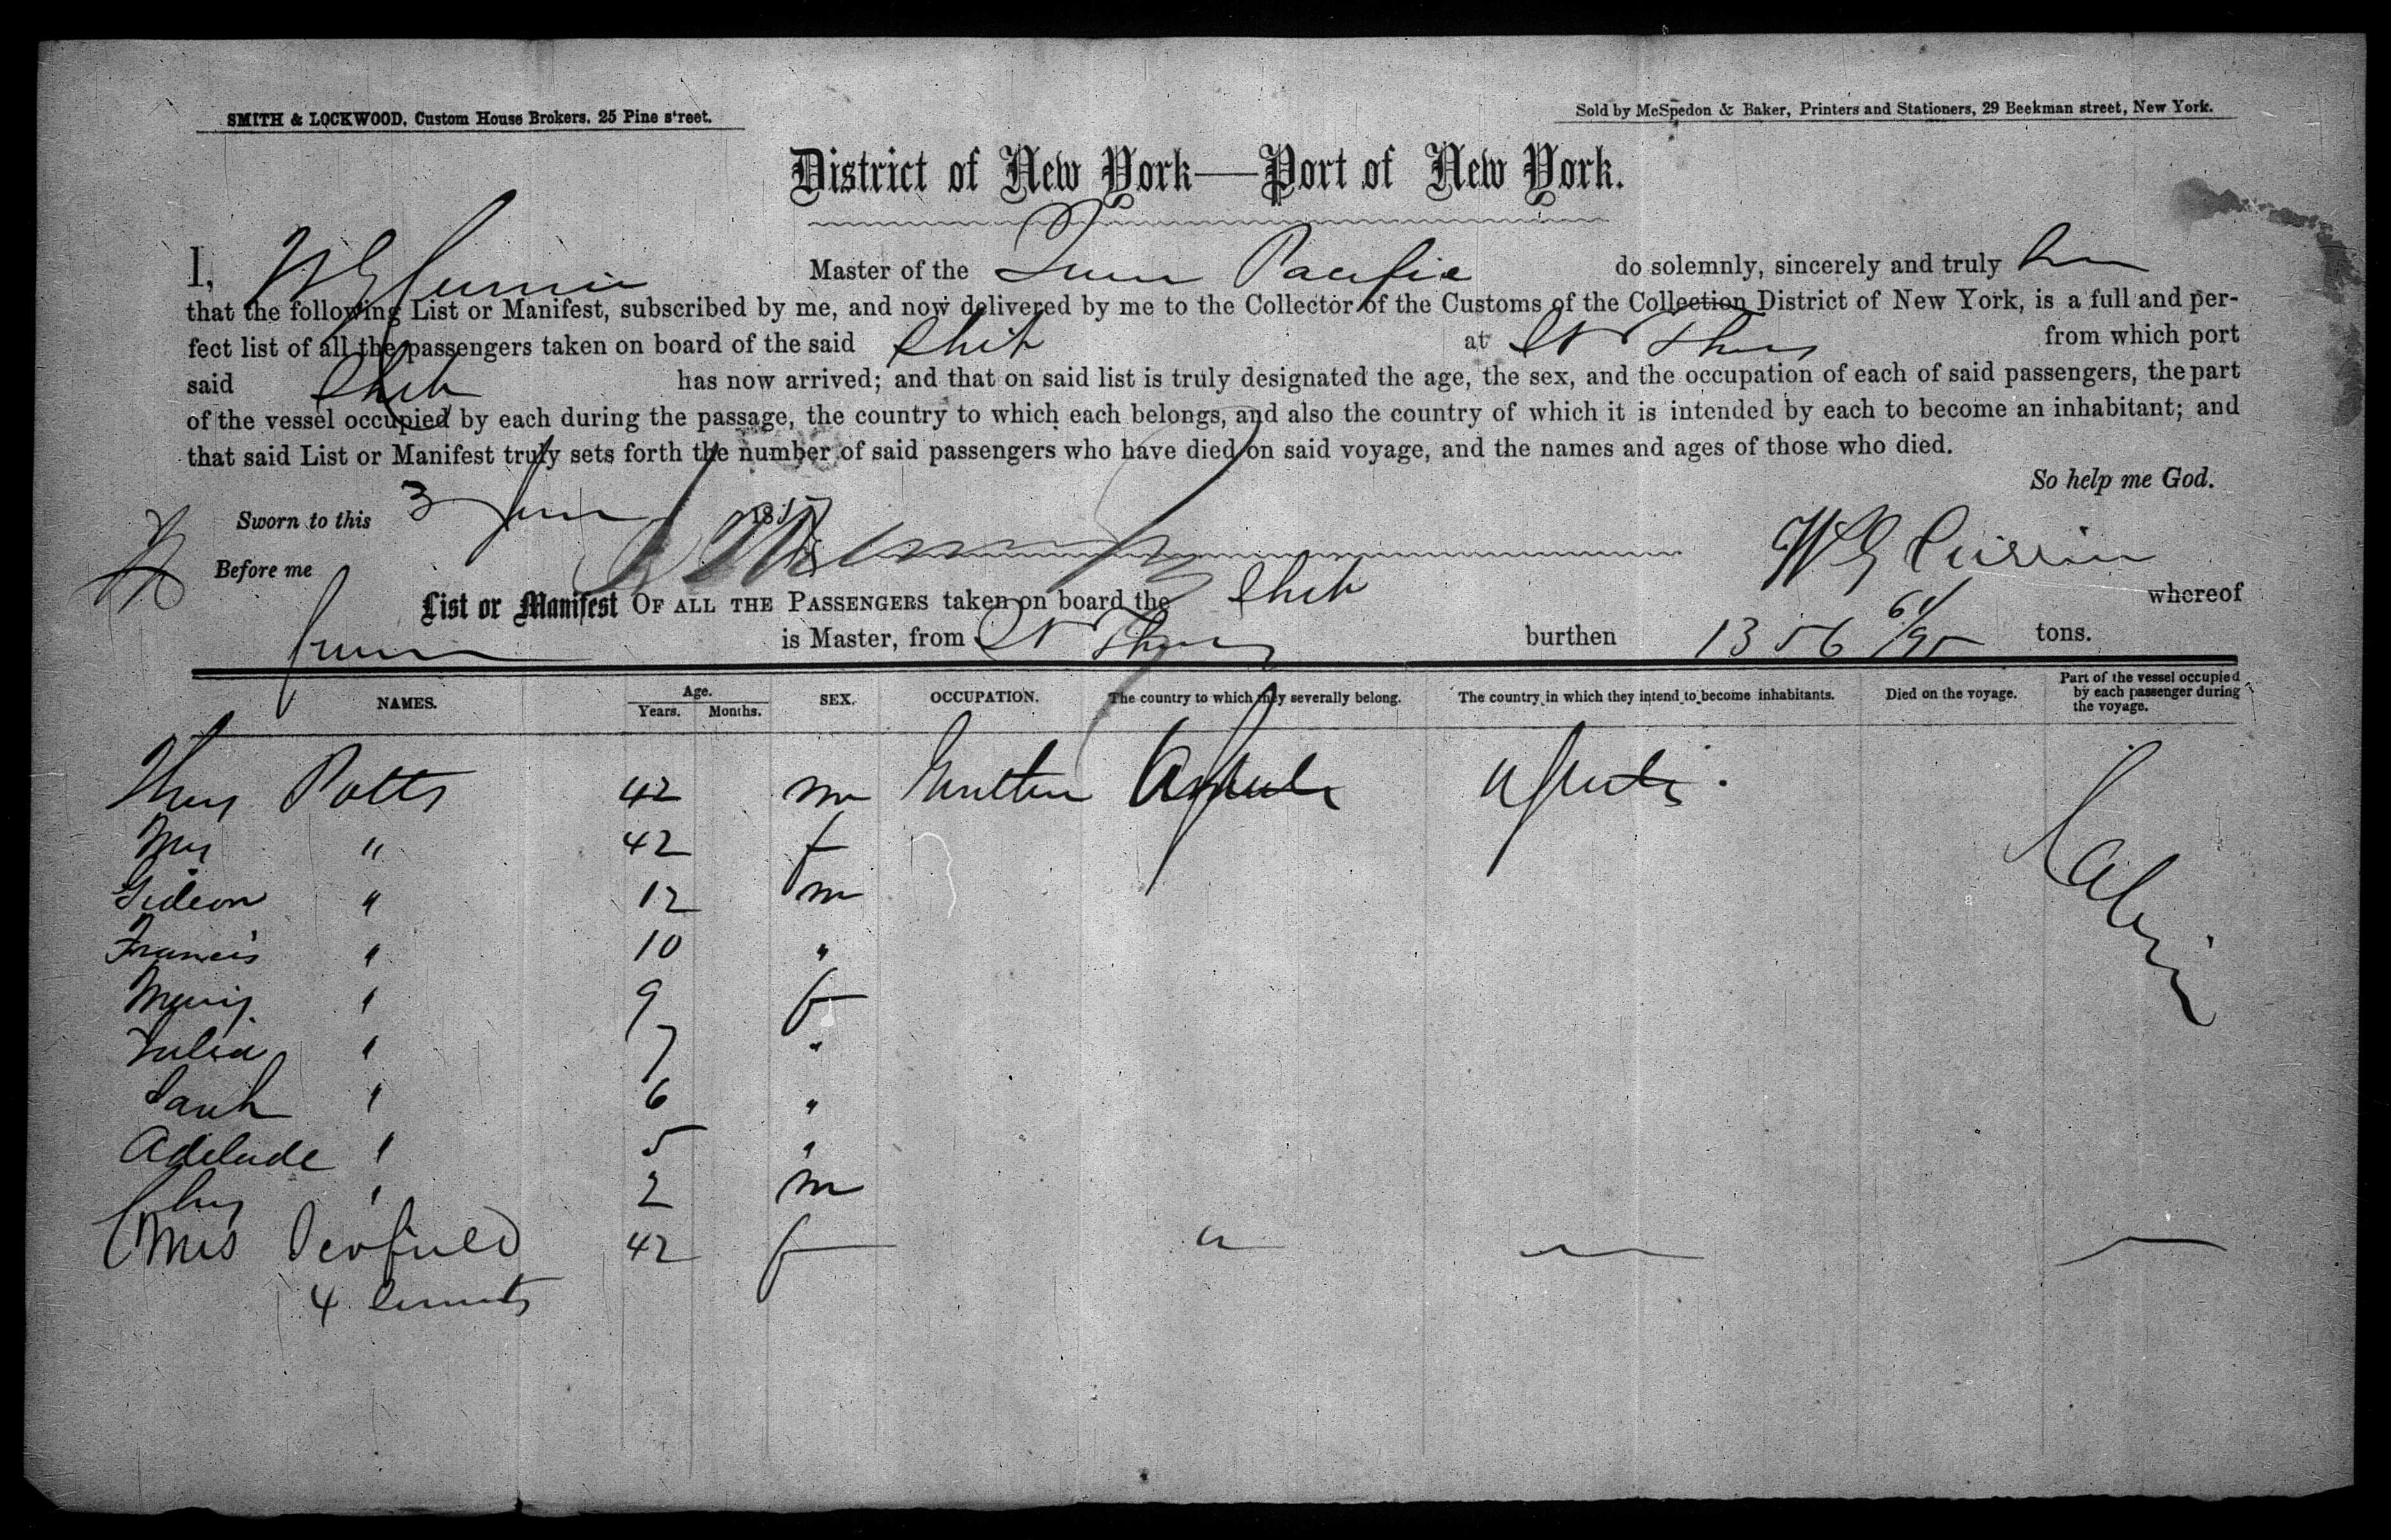 SMITH & LOCKWOOD, Custom House Brokers, 25 Pine street.
Sold by McSpedon & Baker, Printers and Stationers, 29 Beekman street, New York.
District of New York—Port of New York.
I, W G Currier Master of the Queen Pacific do solemnly, sincerely and truly
that the following List or Manifest, subscribed by me, and now delivered by me to the Collector of the Customs of the Collection District of New York, is a full and per-
fect list of all the passengers taken on board of the said Ship at St Thos from which port
said Ship has now arrived; and that on said list is truly designated the age, the sex, and the occupation of each of said passengers, the part
of the vessel occupied by each during the passage, the country to which each belongs, and also the country of which it is intended by each to become an inhabitant; and
that said List or Manifest truly sets forth the number of said passengers who have died on said voyage, and the names and ages of those who died.
So help me God.
Sworn to this 3 June 1857
W G Currier
Before me
List or Manifest OF ALL THE PASSENGERS taken on board the Ship whereof
is Master, from St Thos burthen 1356 64/95 tons.
NAMES. Age. Years. Months. SEX. OCCUPATION. The country to which they severally belong. The country in which they intend to become inhabitants. Died on the voyage. Part of the vessel occupied by each passenger during the voyage.
Thos Potts 42 m U States U States Cabin
Mrs " 42 f
Gideon " 12 m
Francis " 10 "
Mary " 9 f
Julia " 7 "
Sarah " 6 "
Adelaide " 5 "
Chas " 2 m
Mrs Penfield 42 f "
4 servants